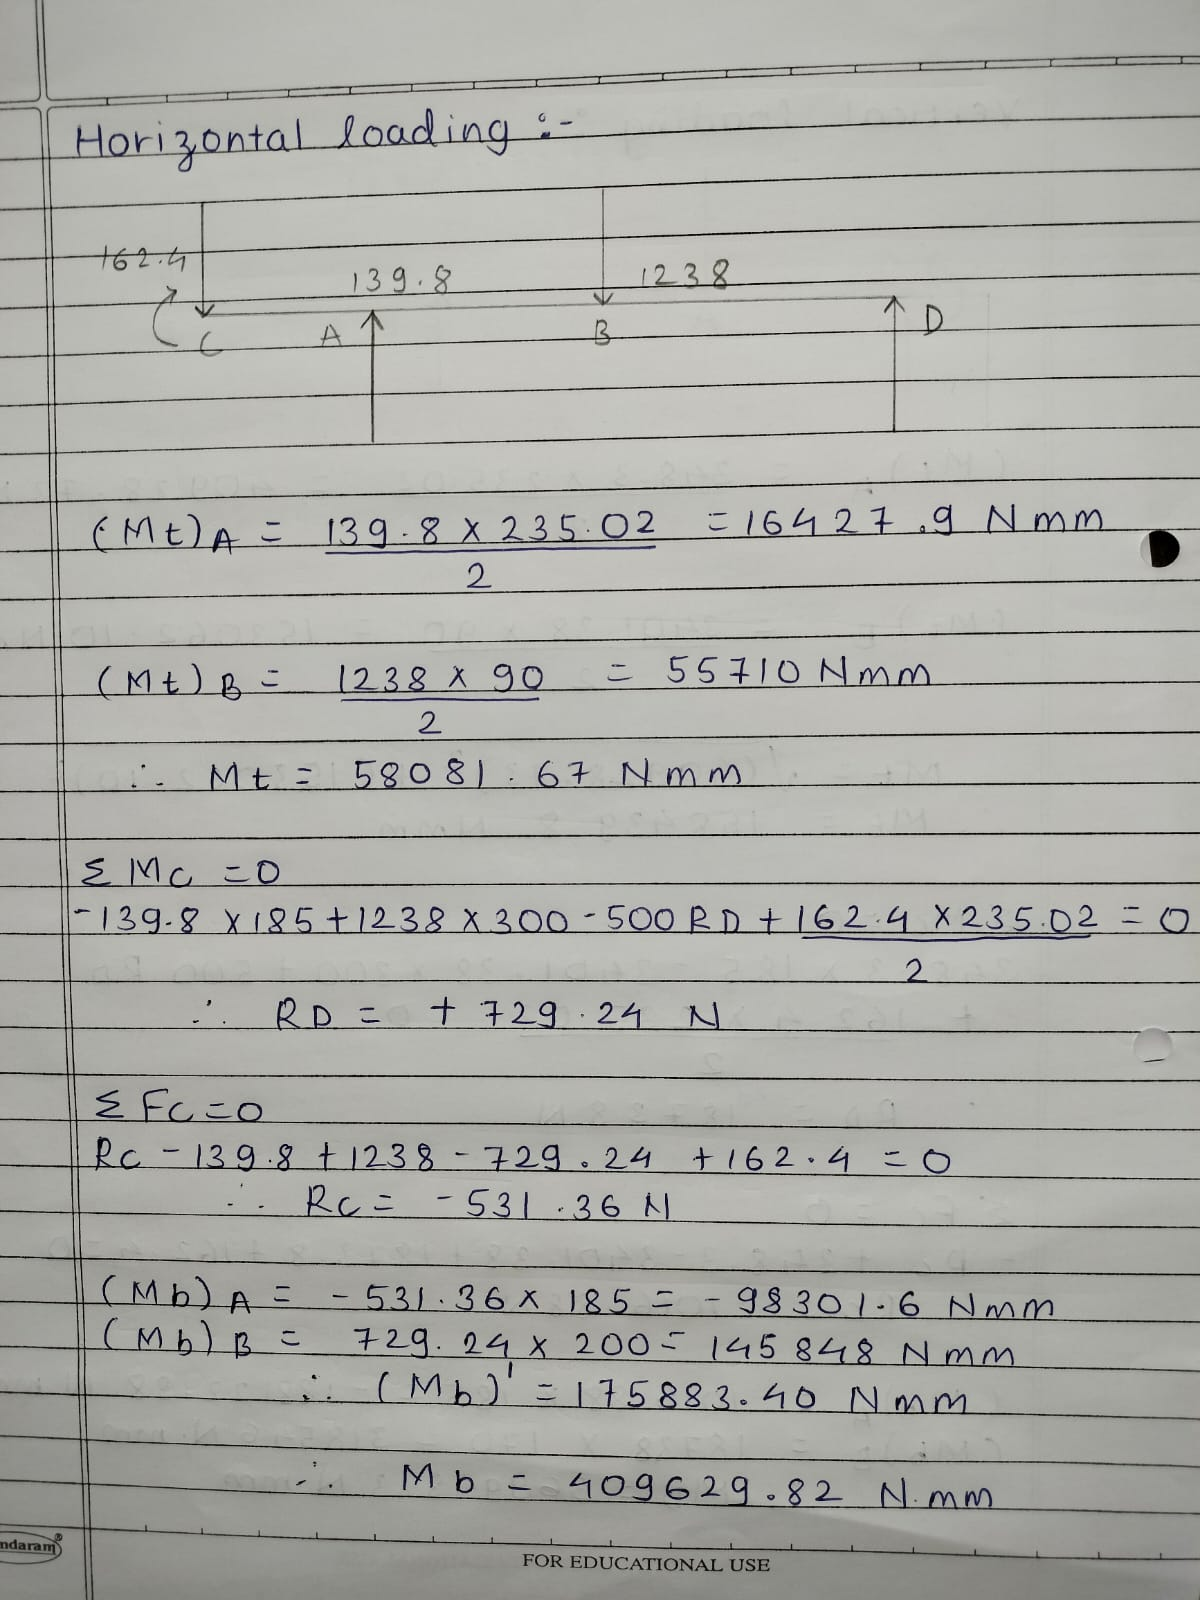 Horizontal loading :-
162.4
139.8
1238
C
A
B
D
(Mt)A = 139.8 x 235.02 = 16427.9 Nmm
2
(Mt)B = 1238 x 90 = 55710 Nmm
2
∴ Mt = 58081.67 Nmm
Σ Mc = 0
-139.8 x 185 + 1238 x 300 - 500 RD + 162.4 x 235.02 = 0
2
∴ RD = + 729.24 N
Σ Fc = 0
Rc - 139.8 + 1238 - 729.24 + 162.4 = 0
∴ Rc = - 531.36 N
(Mb)A = - 531.36 x 185 = - 98301.6 Nmm
(Mb)B = 729.24 x 200 = 145848 Nmm
∴ (Mb)' = 175883.40 Nmm
∴ Mb = 409629.82 N.mm
ndaram®
FOR EDUCATIONAL USE